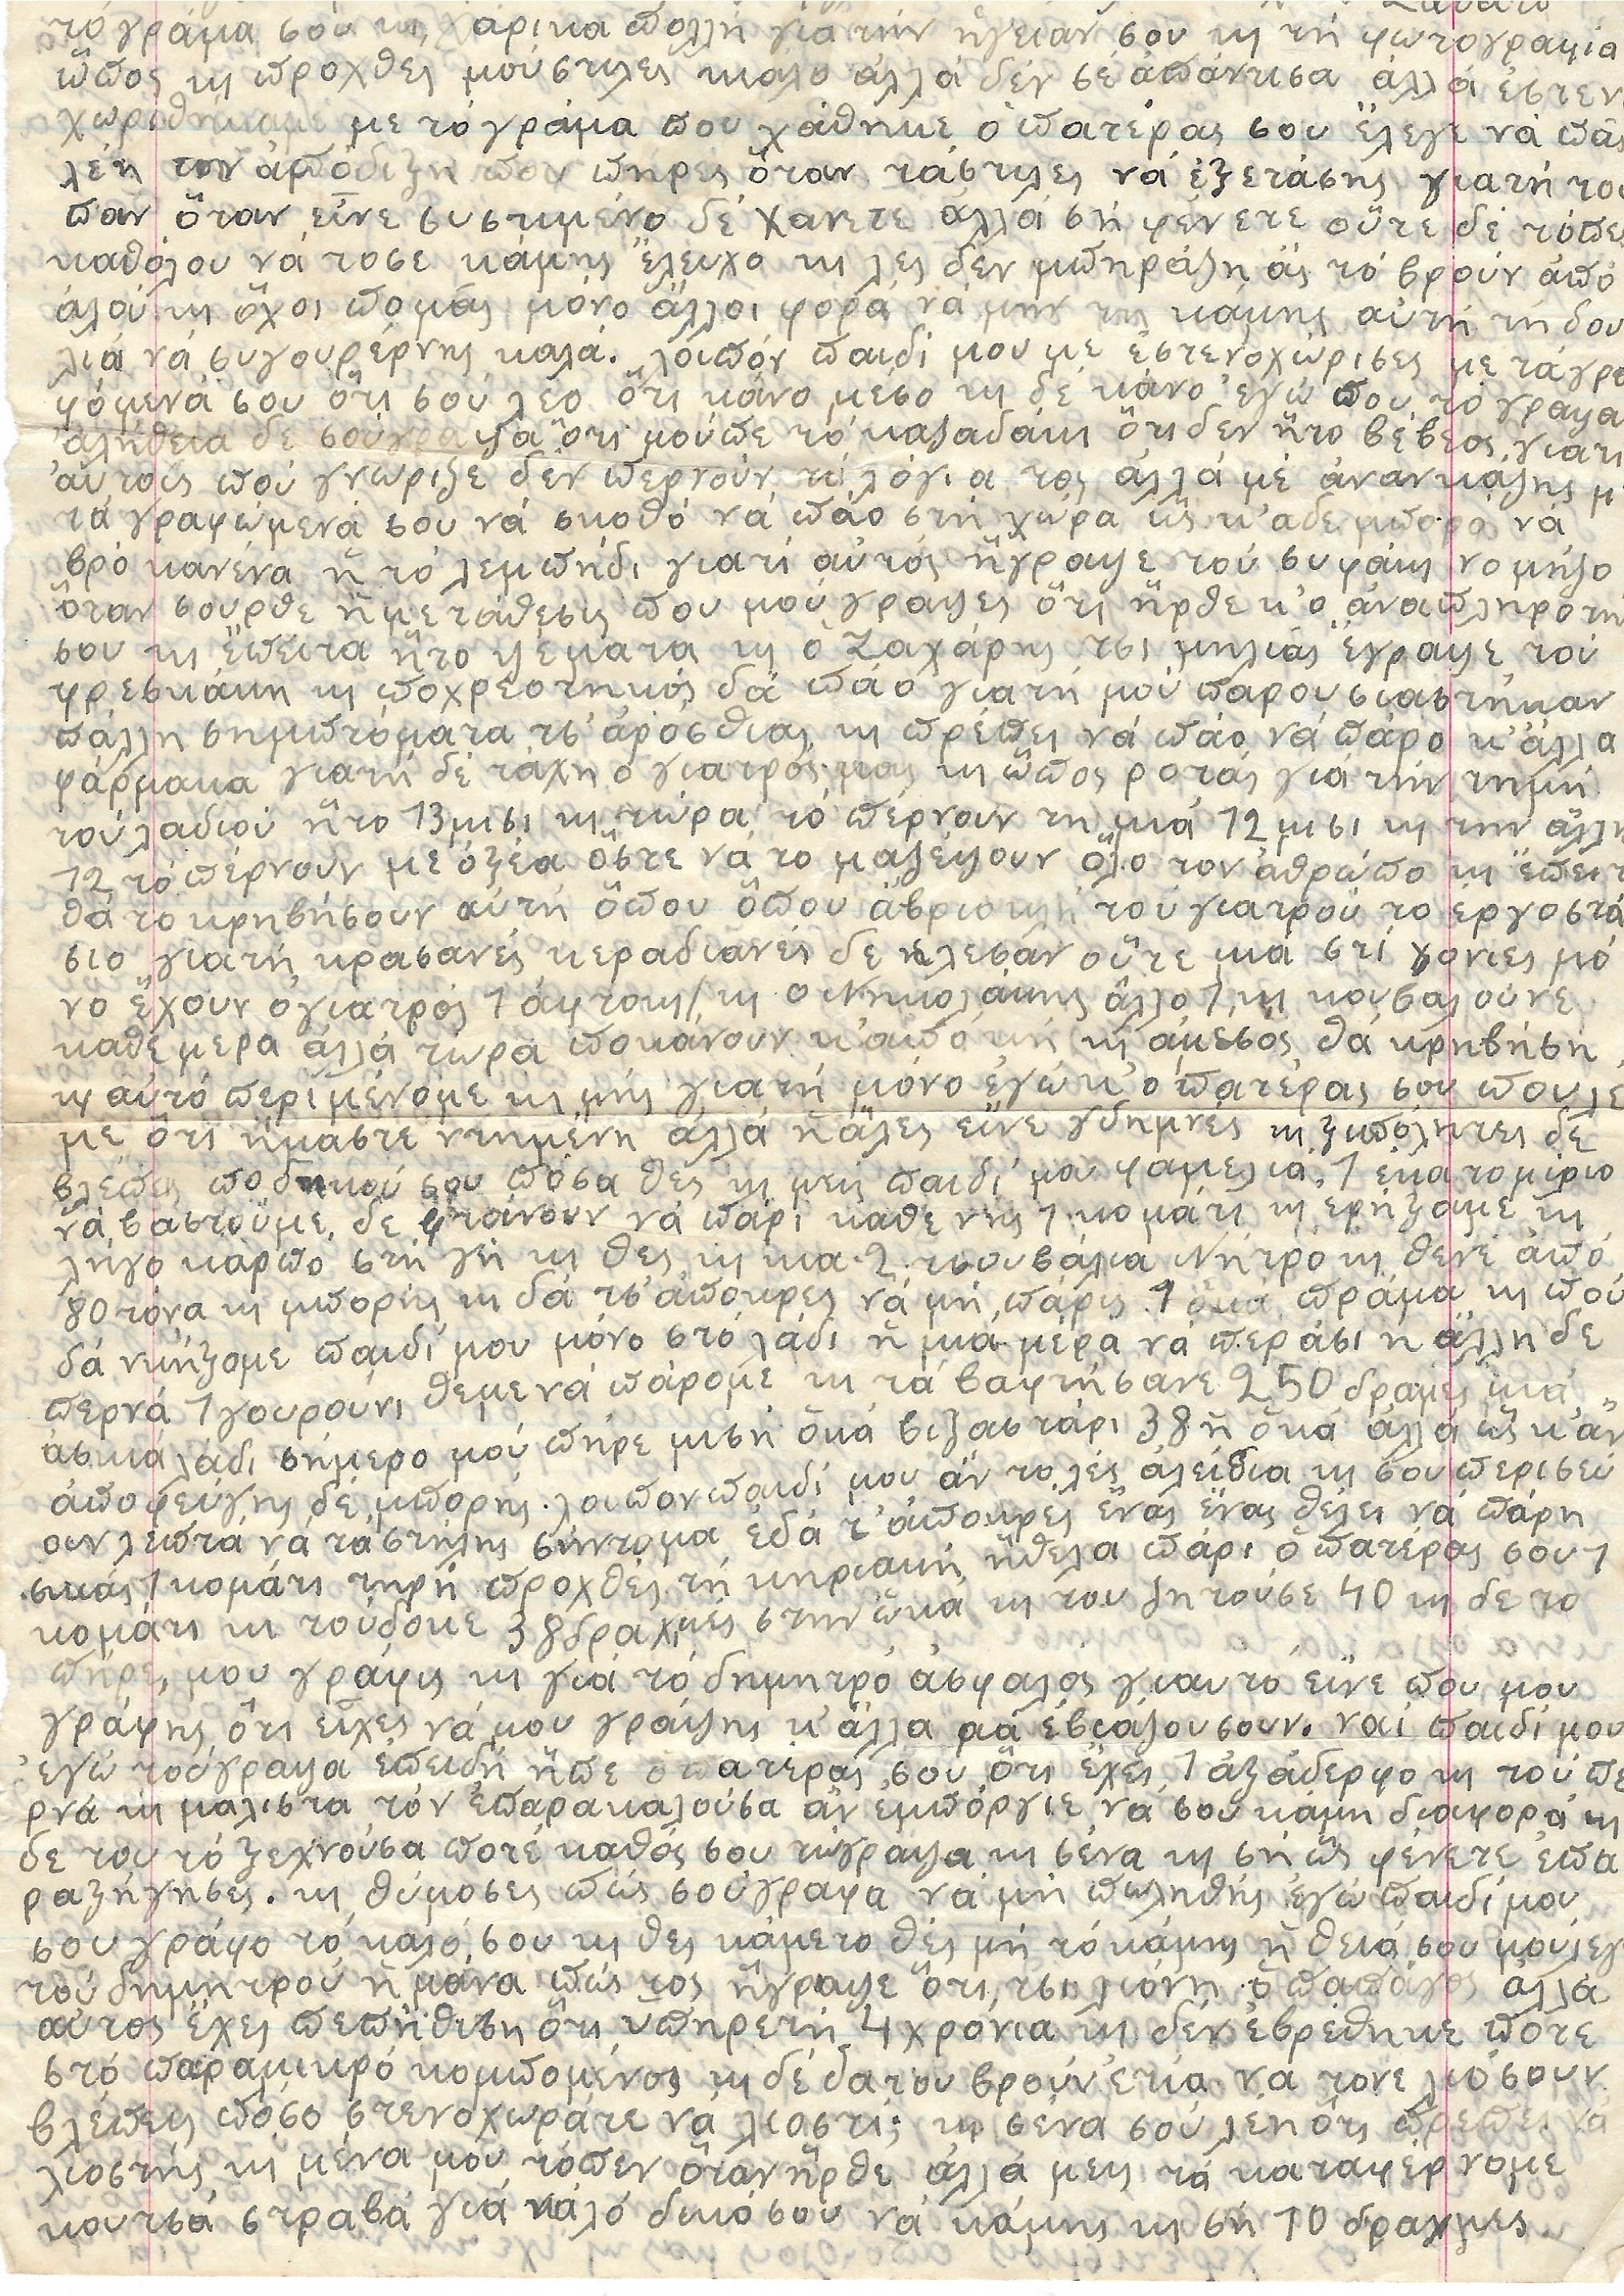 τό γράμα σου κι χάρικα πολλή γιά τήν ἠγείαν σου κι τή φωτογραφία
ὥπος κι προχθές μούστιλες κιάλο ἀλλά δέν σέ ἀπάντισα ἀλλά ἐστεν
χωρεθήκαμε με τό γράμα που χάθηκε ὁ πατέρας σου ἔλεγε νά πᾶς
λέη τον ἀπόδιξη που πηρες ὅταν τάστιλες νά ἐξετάσης γιατή του
παν ὅταν εἶνε συστιμένο δέ χανετε ἀλλά σή φένετε οὔτε δέ τόπες
καθόλου νά τοσε κάμης ἔλευχο κι λές δεν μπηράζη ἄς τό βρούν ἀπό
ἀλού κι ὄχοι πομᾶς μόνο ἄλλοι φορά νά μην της κάμης αὐτή τη δου
λιά νά συγουρέρνης καλά. λοιπόν παιδί μου με ἐστενοχώρισες με τάγρα
φόμενά σου ὅτι σού λέο ὅτι κάνο μέσο κι δέ κάνο ἐγώ που τό γραψα
ἀλήθεια δε σούγραψα ὅτι μούπε τό καψαδάκι ὅτι δεν ἦτο βέβεος γιατι
αὐτούς πού γνώριζε δέν περνούν τά λόγια τος ἀλλά μέ ἀνανκάζης μ'
τά γραφώμενά σου νά σκοθό νά πάο στή χώρα ὥς κ'αδε μπορό νά
βρό κανένα ἤ τό λεμπήδι γιατί αὐτός ἤγραψε τού συφάκη νομήζο
ὅταν σουρθε ἤ μετάθεσις που μού γραψες ὅτι ἦρθε κ'ο ἀναπληροτή
σου κι ἔπειτα ἦτο ψέματα κι ὁ Ζαχάρης τσι μηλιάς ἔγραψε τού
φρεσκάκη κι ποχρεοτηκός δά πάο γιατή μού παρουσιαστήκαν
πάλλη σημπτόματα τσ' ἀρόσθιας κι πρέπει νά πάο νά πάρο κ'άλλα
φάρμακα γιατή δέ τάχη ο γιατρός μας κι ὥπος ροτάς γιά τήν τημή
τού λαδιού ἦτο 13 μισι κι τώρα τό πέρνουν τη μιά 12 μισι κι την άλλη
12 τό πέρνουν με ὀξέα ὅστε νά το μαζέψουν ὅλο τον ἀθρώπο κι ἔπειτ
θά το κρηβήσουν αὐτή ὅπου ὅπου τού γιατρού το ἐργοστά
σιο γιατή κρασανές κεραδιανές δε κλεσάν οὔτε μια στί γονιες μό
νο ἔχουν ὁ γιατρός 1 ἀφτοκι/ κι ο Νηκολάκης ἄλλο 1 κι κουβαλούνε
καθεμερα ἀλλά τώρα ποκάνουν κι ἀμεσός θά κρηβήση
κι αὐτό περιμένομε κι μής γιατή μόνο ἐγώ κ'ο πατέρας σου που λέ
με ὅτι ἤμαστε ντημένη ἀλλά ἤ ἄλες εἶνε γδημνές κι ξιπόλητες δέ
βλέπεις ποδηκού σου πόσα θές κι μεις παιδί μου φαμελιά, 1 ἐκατομίριο
νά βαστούμε δε φτάνουν νά πάρι καθενης 1 κομάτι κι ἐρήξαμε κι
λήγο κάρπο στή γή κι θες κι κια 2 τσουβάλια νήτρο κι θενε ἀπό
80 τόνα κι μπορής κι δά τσ'ἀποκρες νά μή πάρις 1 ὀκά πράμα κι πού
δά νκήξομε παιδί μου μόνο στό λάδι ἤ μιά μέρα νά περάσι η άλλη δε
περνά 1 γουρούνι θεμε νά πάρομε κι τά βαφτήσανε 250 δραμές μιά
ἀσκιά λάδι σήμερο μού πήρε μισή ὀκά βιζαστάρι 38 ἤ ὀκά ἀλλά ὥς κ'ἄν
ἀποφεύγης δέ μπορής. λοιπον παιδί μου ἄν το λές ἀλείθια κι σου περισεύ
ουν λεπτά νά τά στήλης σήντομα ἐδά τ'ἀποκρές ἔνας ἔνας θέλει νά πάρη
σκιάς 1 κομάτι τηρή προχθές τή κηριακή ἤθελα πάρι ὁ πατέρας σου 1
κομάτι κι τούδοκε 38 δραχμές στην ὠκά κι του ζητούσε 40 κι δε το
πήρε, μου γράφις κι γιά τό δημητρό ἀσφαλός γιαυτό εἶνε που μου
γράφης ὅτι εἶχες νά μου γράψης κ'ἄλλα μά ἐβιαζουσουν. ναί παιδί μου
ἐγώ τούγραψα ἐπειδή ἦπε ὁ πατέρας σου ὅτι ἔχει 1 ἀξάδερφο κι τού πε
ρνά κι μαλιστα τόν ἐπαρακαλούσα ἄν ἐμπόργιε νά σου κάμη διαφορά κι
δε του τό ξεχνούσα ποτέ καθός σου τώγραψα κι σένα κι σή ὥς φένετε ἐπα
ραξήγησες. κι θύμοσες πώς σούγραφα νά μή πωληθής ἐγώ παιδί μου
σου γράφο τό καλό σου κι θες κάμετο θές μή τό κάμης ἤ θειά σου μούλεγ
τού δημητρού ἤ μάνα πώς τος ἤγραψε ὅτι τσι λιόνη ὁ παπάγος ἀλλά
αὐτος ἔχει πεπήθιση ὅτι ὑπηρετή 4 χρόνια κι δέν ἐβρέθηκε ποτε
στό παραμικρό κομπομένος κι δέ δα του βρούν ἐτία να τονε λιόσουν
βλέπεις πόσο στενοχωράτε νά λιοστί; κι σένα σού λέη ὅτι πρεπει νά
λιοστής κι μένα μού τόπεν ὅταν ἦρθε ἀλλά μεις τά καταφέρνομε
κουτσά στραβά γιά καλό δικόσου νά κάμης κι σή 10 δραχμες.